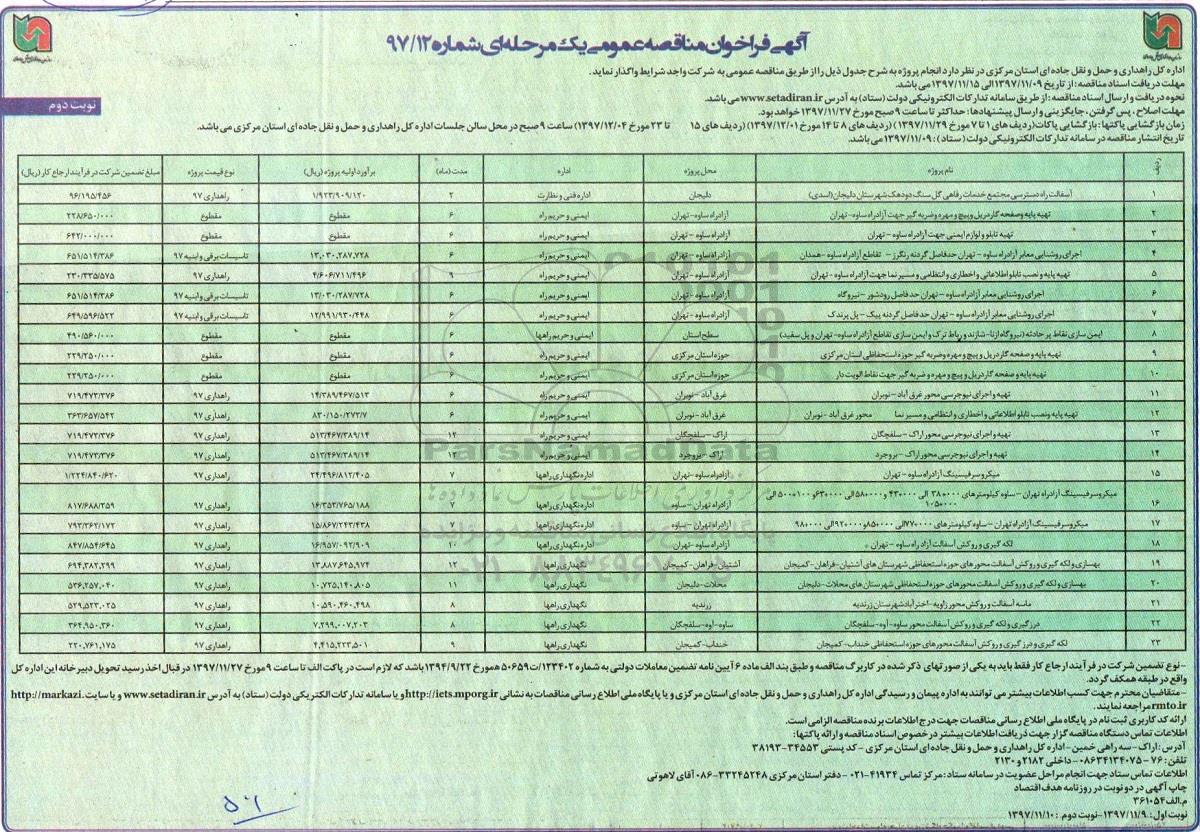 آگهی فراخوان مناقصه عمومی یک مرحله‌ای شماره ۹۷/۱۲
نوبت دوم
اداره کل راهداری و حمل و نقل جاده ای استان مرکزی در نظر دارد انجام پروژه به شرح جدول ذیل را از طریق مناقصه عمومی به شرکت واجد شرایط واگذار نماید.
مهلت دریافت اسناد مناقصه : از تاریخ ۱۳۹۷/۱۱/۰۹ الی ۱۳۹۷/۱۱/۱۵ می باشد.
نحوه دریافت و ارسال اسناد مناقصه : از طریق سامانه تدارکات الکترونیکی دولت (ستاد) به آدرس www.setadiran.ir می باشد.
مهلت اصلاح , پس گرفتن , جایگزینی و ارسال پیشنهادها : حداکثر تا ساعت ۹ صبح مورخ ۱۳۹۷/۱۱/۲۷ خواهد بود.
زمان بازگشایی پاکتها: بازگشایی پاکات (ردیف های ۱ تا ۷ مورخ ۱۳۹۷/۱۱/۲۹) (ردیف های ۸ تا ۱۴ مورخ ۱۳۹۷/۱۲/۰۱) (ردیف های ۱۵ تا ۲۳ مورخ ۱۳۹۷/۱۲/۰۴) ساعت ۹ صبح در محل سالن جلسات اداره کل راهداری و حمل و نقل جاده ای استان مرکزی می باشد.
تاریخ انتشار مناقصه در سامانه تدارکات الکترونیکی دولت (ستاد) : ۱۳۹۷/۱۱/۰۹ می باشد.
ردیف نام پروژه محل پروژه اداره مدت (ماه) برآورد اولیه پروژه (ریال) نوع قیمت پروژه مبلغ تضمین شرکت در فرآیند ارجاع کار (ریال)
۱ آسفالت راه دسترسی مجتمع خدمات رفاهی گل سنگ دودهک شهرستان دلیجان (اسدی) دلیجان اداره فنی و نظارت ۲ ۱/۹۲۳/۹۰۹/۱۲۰ راهداری ۹۷ ۹۶/۱۹۵/۴۵۶
۲ تهیه پایه وصفحه گاردریل و پیچ و مهره و ضربه گیر جهت آزادراه ساوه- تهران آزادراه ساوه - تهران ایمنی و حریم راه ۶ مقطوع مقطوع ۲۲۸/۶۵۰/۰۰۰
۳ تهیه تابلو و لوازم ایمنی جهت آزادراه ساوه - تهران آزادراه ساوه - تهران ایمنی و حریم راه ۶ مقطوع مقطوع ۶۴۲/۰۰۰/۰۰۰
۴ اجرای روشنایی معابر آزادراه ساوه - تهران حدفاصل گردنه زنگرز - تقاطع آزادراه ساوه - همدان آزادراه ساوه - تهران ایمنی و حریم راه ۶ ۱۳,۰۳۰,۲۸۷,۷۲۸ تاسیسات برقی و ابنیه ۹۷ ۶۵۱/۵۱۴/۳۸۶
۵ تهیه پایه و نصب تابلو اطلاعاتی و اخطاری و انتظامی و مسیر نما جهت آزادراه ساوه - تهران آزادراه ساوه - تهران ایمنی و حریم راه ۹ ۴/۶۰۶/۷۱۱/۴۹۶ راهداری ۹۷ ۲۳۰/۳۳۵/۵۷۵
۶ اجرای روشنایی معابر آزادراه ساوه - تهران حد فاصل رودشور - نیروگاه آزادراه ساوه - تهران ایمنی و حریم راه ۶ ۱۳/۰۳۰/۲۸۷/۷۲۸ تاسیسات برقی و ابنیه ۹۷ ۶۵۱/۵۱۴/۳۸۶
۷ اجرای روشنایی معابر آزادراه ساوه - تهران حدفاصل گردنه پیک - پل پرندک آزادراه ساوه - تهران ایمنی و حریم راه ۶ ۱۲/۹۹۱/۹۳۰/۴۴۸ تاسیسات برقی و ابنیه ۹۷ ۶۴۹/۵۹۶/۵۲۲
۸ ایمن سازی نقاط پر حادثه (نیروگاه ازنا- شازند و رباط ترک و ایمن سازی تقاطع آزادراه ساوه- تهران و پل سفید) سطح استان ایمنی و حریم راهها ۶ مقطوع مقطوع ۴۹۰/۵۶۰/۰۰۰
۹ تهیه پایه و صفحه گاردریل و پیچ و مهره و ضربه گیر حوزه استحفاظی استان مرکزی حوزه استان مرکزی ایمنی و حریم راه ۶ مقطوع مقطوع ۲۲۹/۲۵۰/۰۰۰
۱۰ تهیه پایه و صفحه گاردریل و پیچ و مهره و ضربه گیر جهت نقاط الویت دار حوزه استان مرکزی ایمنی و حریم راه ۶ مقطوع مقطوع ۲۲۹/۲۵۰/۰۰۰
۱۱ تهیه و اجرای نیوجرسی محور غرق آباد - نوبران غرق آباد - نوبران ایمنی و حریم راه ۶ ۱۴/۳۸۹/۴۶۷/۵۱۳ راهداری ۹۷ ۷۱۹/۴۷۳/۳۷۶
۱۲ تهیه پایه ونصب تابلو اطلاعاتی و اخطاری و انتظامی و مسیر نما محور غرق آباد - نوبران غرق آباد - نوبران ایمنی و حریم راه ۶ ۸۳۰/۱۵۰/۲۷۳/۷ راهداری ۹۷ ۳۶۳/۶۵۷/۵۴۲
۱۳ تهیه و اجرای نیوجرسی محور اراک - سلفچگان اراک - سلفچگان ایمنی و حریم راه ۱۲ ۵۱۳/۴۶۷/۳۸۹/۱۴ راهداری ۹۷ ۷۱۹/۴۷۳/۳۷۶
۱۴ تهیه و اجرای نیوجرسی محور اراک - بروجرد اراک - بروجرد ایمنی و حریم راه ۱۲ ۵۱۳/۴۶۷/۳۸۹/۱۴ راهداری ۹۷ ۷۱۹/۴۷۳/۳۷۶
۱۵ میکروسرفیسینگ آزادراه ساوه - تهران آزادراه ساوه - تهران اداره نگهداری راهها ۷ ۲۴/۴۹۶/۸۱۲/۴۰۵ راهداری ۹۷ ۱/۲۲۴/۸۴۰/۶۲۰
۱۶ میکروسرفیسینگ آزادراه تهران - ساوه کیلومترهای ۳۸۰۰۰۰ الی ۴۳۰۰۰۰ و ۵۸۰۰۰۰ الی ۶۳۰۰۰۰ و ۱۰۰۵۰۰۰ الی ۱۰۵۰۰۰۰ آزادراه تهران - ساوه اداره نگهداری راهها ۷ ۱۶/۳۵۳/۷۶۵/۱۸۸ راهداری ۹۷ ۸۱۷/۶۸۸/۲۵۹
۱۷ میکروسرفیسینگ آزادراه تهران - ساوه کیلومتر های ۷۷۰۰۰۰ الی ۸۵۰۰۰۰ و ۹۲۰۰۰۰ الی ۹۸۰۰۰۰ آزادراه تهران - ساوه اداره نگهداری راهها ۷ ۱۵/۸۶۷/۲۴۳/۴۳۸ راهداری ۹۷ ۷۹۳/۳۶۲/۱۷۲
۱۸ لکه گیری و روکش آسفالت آزاد راه ساوه - تهران آزادراه ساوه - تهران اداره نگهداری راهها ۱۰ ۱۶/۹۵۷/۰۹۲/۹۰۹ راهداری ۹۷ ۸۴۷/۸۵۴/۶۴۵
۱۹ بهسازی و لکه گیری و روکش آسفالت محورهای حوزه استحفاظی شهرستان های آشتیان - فراهان - کمیجان آشتیان - فراهان - کمیجان نگهداری راهها ۱۲ ۱۳,۸۸۷,۶۴۵,۹۷۴ راهداری ۹۷ ۶۹۴,۳۸۲,۲۹۹
۲۰ بهسازی و لکه گیری و روکش آسفالت محورهای حوزه استحفاظی شهرستان های محلات - دلیجان محلات - دلیجان نگهداری راهها ۱۱ ۱۰,۷۲۵,۱۴۰,۸۰۵ راهداری ۹۷ ۵۳۶,۲۵۷,۰۴۰
۲۱ ماسه آسفالت و روکش محور زاویه - اخترآباد شهرستان زرندیه زرندیه نگهداری راهها ۸ ۱۰,۵۹۰,۴۶۰,۴۹۸ راهداری ۹۷ ۵۲۹,۵۲۳,۰۲۵
۲۲ درزگیری و لکه گیری و روکش آسفالت محور ساوه - آوه - سلفچگان ساوه - آوه - سلفچگان نگهداری راهها ۸ ۷,۲۹۹,۰۰۷,۲۰۳ راهداری ۹۷ ۳۶۴,۹۵۰,۳۶۰
۲۳ لکه گیری و درزگیری و روکش آسفالت محورهای حوزه استحفاظی خنداب - کمیجان خنداب - کمیجان نگهداری راهها ۹ ۴,۴۱۵,۲۲۳,۵۰۱ راهداری ۹۷ ۲۲۰,۷۶۱,۱۷۵
-نوع تضمین شرکت در فرآیند ارجاع کار فقط باید به یکی از صورتهای ذکر شده در کاربرگ مناقصه و طبق بند الف ماده ۶ آیین نامه تضمین معاملات دولتی به شماره ۱۲۳۴۰۲/ت۵۰۶۵۹ ه مورخ ۱۳۹۴/۹/۲۲ باشد که لازم است در پاکت الف تا ساعت ۹ مورخ ۱۳۹۷/۱۱/۲۷ در قبال اخذ رسید تحویل دبیرخانه این اداره کل
واقع در طبقه همکف گردد.
-متقاضیان محترم جهت کسب اطلاعات بیشتر می توانند به اداره پیمان و رسیدگی اداره کل راهداری و حمل و نقل جاده ای استان مرکزی و یا پایگاه ملی اطلاع رسانی مناقصات به نشانی http://iets.mporg.ir و یا سامانه تدارکات الکتریکی دولت (ستاد) به آدرس www.setadiran.ir و یا سایت http://markazi.
rmto.ir مراجعه نمایند.
ارائه کد کاربری ثبت نام در پایگاه ملی اطلاع رسانی مناقصات جهت درج اطلاعات برنده مناقصه الزامی است.
اطلاعات تماس دستگاه مناقصه گزار جهت دریافت اطلاعات بیشتر در خصوص اسناد مناقصه و ارائه پاکتها:
آدرس : اراک - سه راهی خمین - اداره کل راهداری و حمل و نقل جاده ای استان مرکزی - کد پستی ۳۴۵۵۳-۳۸۱۹۳
تلفن : ۷۶ - ۰۸۶۳۴۱۳۴۰۷۵ - داخلی ۲۱۸۲ و ۲۱۳۰
اطلاعات تماس ستاد جهت انجام مراحل عضویت در سامانه ستاد : مرکز تماس ۴۱۹۳۴-۰۲۱ - دفتر استان مرکزی ۳۳۲۴۵۲۴۸-۰۸۶ آقای لاهوتی
چاپ آگهی در دو نوبت در روزنامه هدف اقتصاد
م.الف ۳۶۱۰۵۴
نوبت اول : ۱۳۹۷/۱۱/۹ -نوبت دوم : ۱۳۹۷/۱۱/۱۰
ParsNamadData